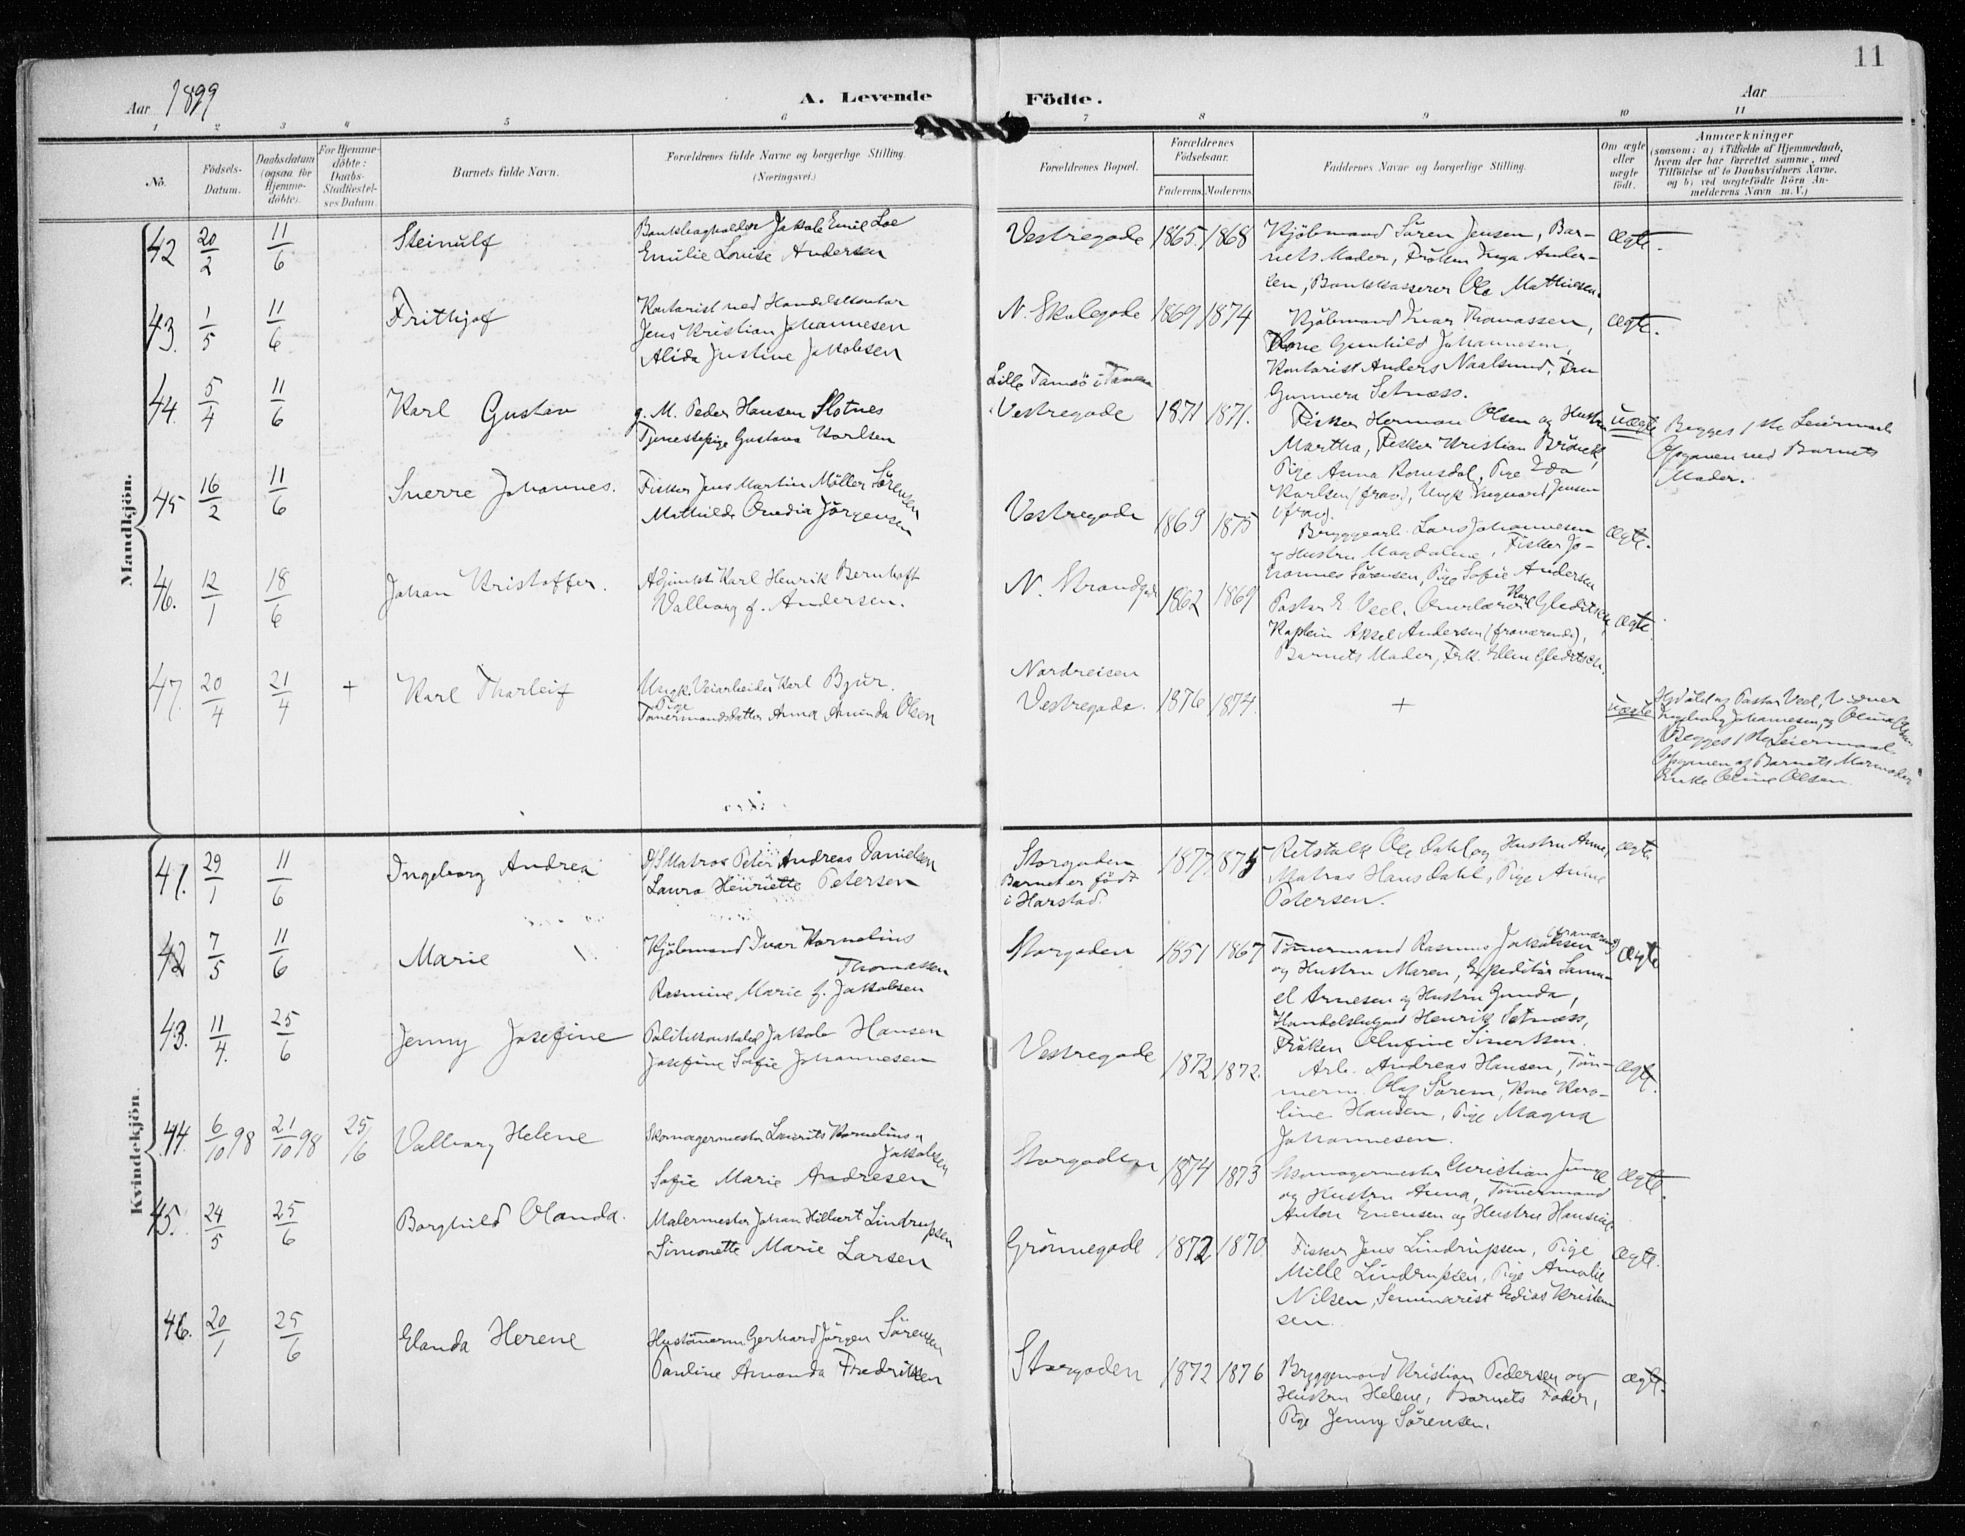 11
Aar 1899 A. Levende Födte. Aar
1 2 3 4 5 6 7 8 9 10 11
No.
Födsels-Datum.
Daabsdatum (ogsaa for Hjemme-döbte).
For Hjemme-döbte: Daabs-Stadfæstel-ses Datum.
Barnets fulde Navn.
Forældrenes fulde Navne og borgerlige Stilling.
(Næringsvei.)
Forældrenes Bopæl.
Forældrenes Födselsaar.
Faderens. Moderens.
Faddernes Navne og borgerlige Stilling.
Om ægte eller uægte födt.
Anmærkninger
(saasom: a) i Tilfælde af Hjemmedaab,
hvem der har forrettet samme, med
Tilföielse af to Daabsvidners Navne,
og b) ved uægtefödte Börn An-
melderens Navn m. V.)
Mandkjön.
42 20/2 11/6 Steinulf
Bankbogholder Jakob Emil Loe
Emilie Louise Andersen
Vestregade 1865. 1868
Kjöbmand Sören Jensen, Bar-
nets Moder, Fröken Inga Ander-
sen, Bankkasserer Ole Mathiesen.
Ægte.
43. 1/5 11/6 Frithjof
Kontorist ved Handelskontor
Jens Kristian Johannesen
Alida Justine Jakobsen
N. Skolegade 1869 1874
Kjöbmand Ivar Thomassen,
Kone Gunhild Johannesen,
Kontorist Anders Naalsund, Fru
Gunnera Setnæss.
Ægte.
44. 5/4 11/6 Karl Gustav
g. M. Peder Hansen Slotnes
Tjenestepige Gustava Karlsen
Lille Tamsö i Tanen
Vestregade 1871 1871.
Fisker Herman Olsen og Hustru
Martha, Fisker Kristian Brönck,
Pige Anna Romsdal, Pige Ida
Karlsen (frav.), Ungk. Ingvard Jensen
(frav).
Uægte
Begges 1ste Leiermaal
Opgaven ved Barnets
Moder.
45 16/2 11/6 Sverre Johannes.
Fisker Jens Martin Möller Sörensen
Mathilde Ovedia Jörgensen
Vestregade 1869 1875
Bryggearb. Lars Johannesen
og Hustru Magdalene, Fisker Jo-
hannes Sörensen, Pige Sofie Andersen
Ægte.
46. 12/1 18/6 Johan Kristoffer.
Adjunkt Karl Henrik Bernhoft
Valborg f. Andersen.
N. Strandgade 1862 1869
Pastor E. Veel, Overlærer Karl Gleditsch,
Kaptein Aksel Andersen (fraværende),
Barnets Moder, Frk. Ellen Gleditsch.
Ægte.
47. 20/4 21/4 + Karl Tharleif
Ungk. Veiarbeider Karl Bjur.
Pige
Tömermandsdatter Anna Aminda Olsen
Nordreisen
Vestregade. 1876 1874.
+
Uægte
Hjdöbt af Pastor Veel, Vidner
Ingeborg Johannesen, og Olina Olsen.
Begges 1ste Leiermaal.
Opgaven af Barnets Mormoder
Enke Oline Olsen.
Kvindekjön.
41. 29/1 11/6 Ingeborg Andrea
D/S Matros Peter Andreas Danielsen
Laura Henriette Petersen
Storgaden
Barnet er födt
i Harstad.
1877. 1875
Retstolk Ole Dahl og Hustru Anne,
Matros Hans Dahl, Pige Anine
Petersen.
Ægte
42 7/5 11/6 Marie
Kjöbmand Ivar Kornelius
Thomassen
Rasmine Marie f. Jakobsen
Storgaden 1851 1867
Tömermand Rasmus Jakobsen (fraværende)
og Hustru Maren, Expeditör Samu-
el Arnesen og Hustru Gunda,
Handelsbetjent Henrik Setnæss,
Fröken Olufine Sivertsen.
Ægte
43. 11/4. 25/6 Jenny Josefine
Politikonstabel Jakob Hansen
Josefine Sofie Johannesen
Vestregade 1872 1872.
Arb. Andreas Hansen, Töm-
merm. Olaf Sörem, Kone Karo-
line Hansen, Pige Magna
Johannesen.
Ægte.
44. 6/10 98 21/10 98 25/6 Valborg Helene
Skomagermester Laurits Kornelius
Jakobsen
Sofie Marie Andresen
Storgaden 1874 1873
Skomagermester Christian Junge
og Hustru Anna, Tömermand
Anton Evensen og Hustru Hansine
Ægte.
45. 24/5 25/6 Borghild Olanda.
Malermester Johan Hilbert Lindrupsen
Simonette Marie Larsen
Grönnegade 1872 1870
Fisker Jens Lindrupsen, Pige
Mille Lindrupsen, Pige Amalie
Nilsen, Seminarist Edias Kristen
sen.
Ægte.
46. 20/1 25/6 Elanda Herene
Hustömerm. Gerhard Jörgen Sörensen
Pauline Amanda Fredriksen
Storgaden 1872 1876
Bryggemand Kristian Pedersen og
Hustru Helene, Barnets Fader,
Pige Jenny Sörensen.
Ægte.